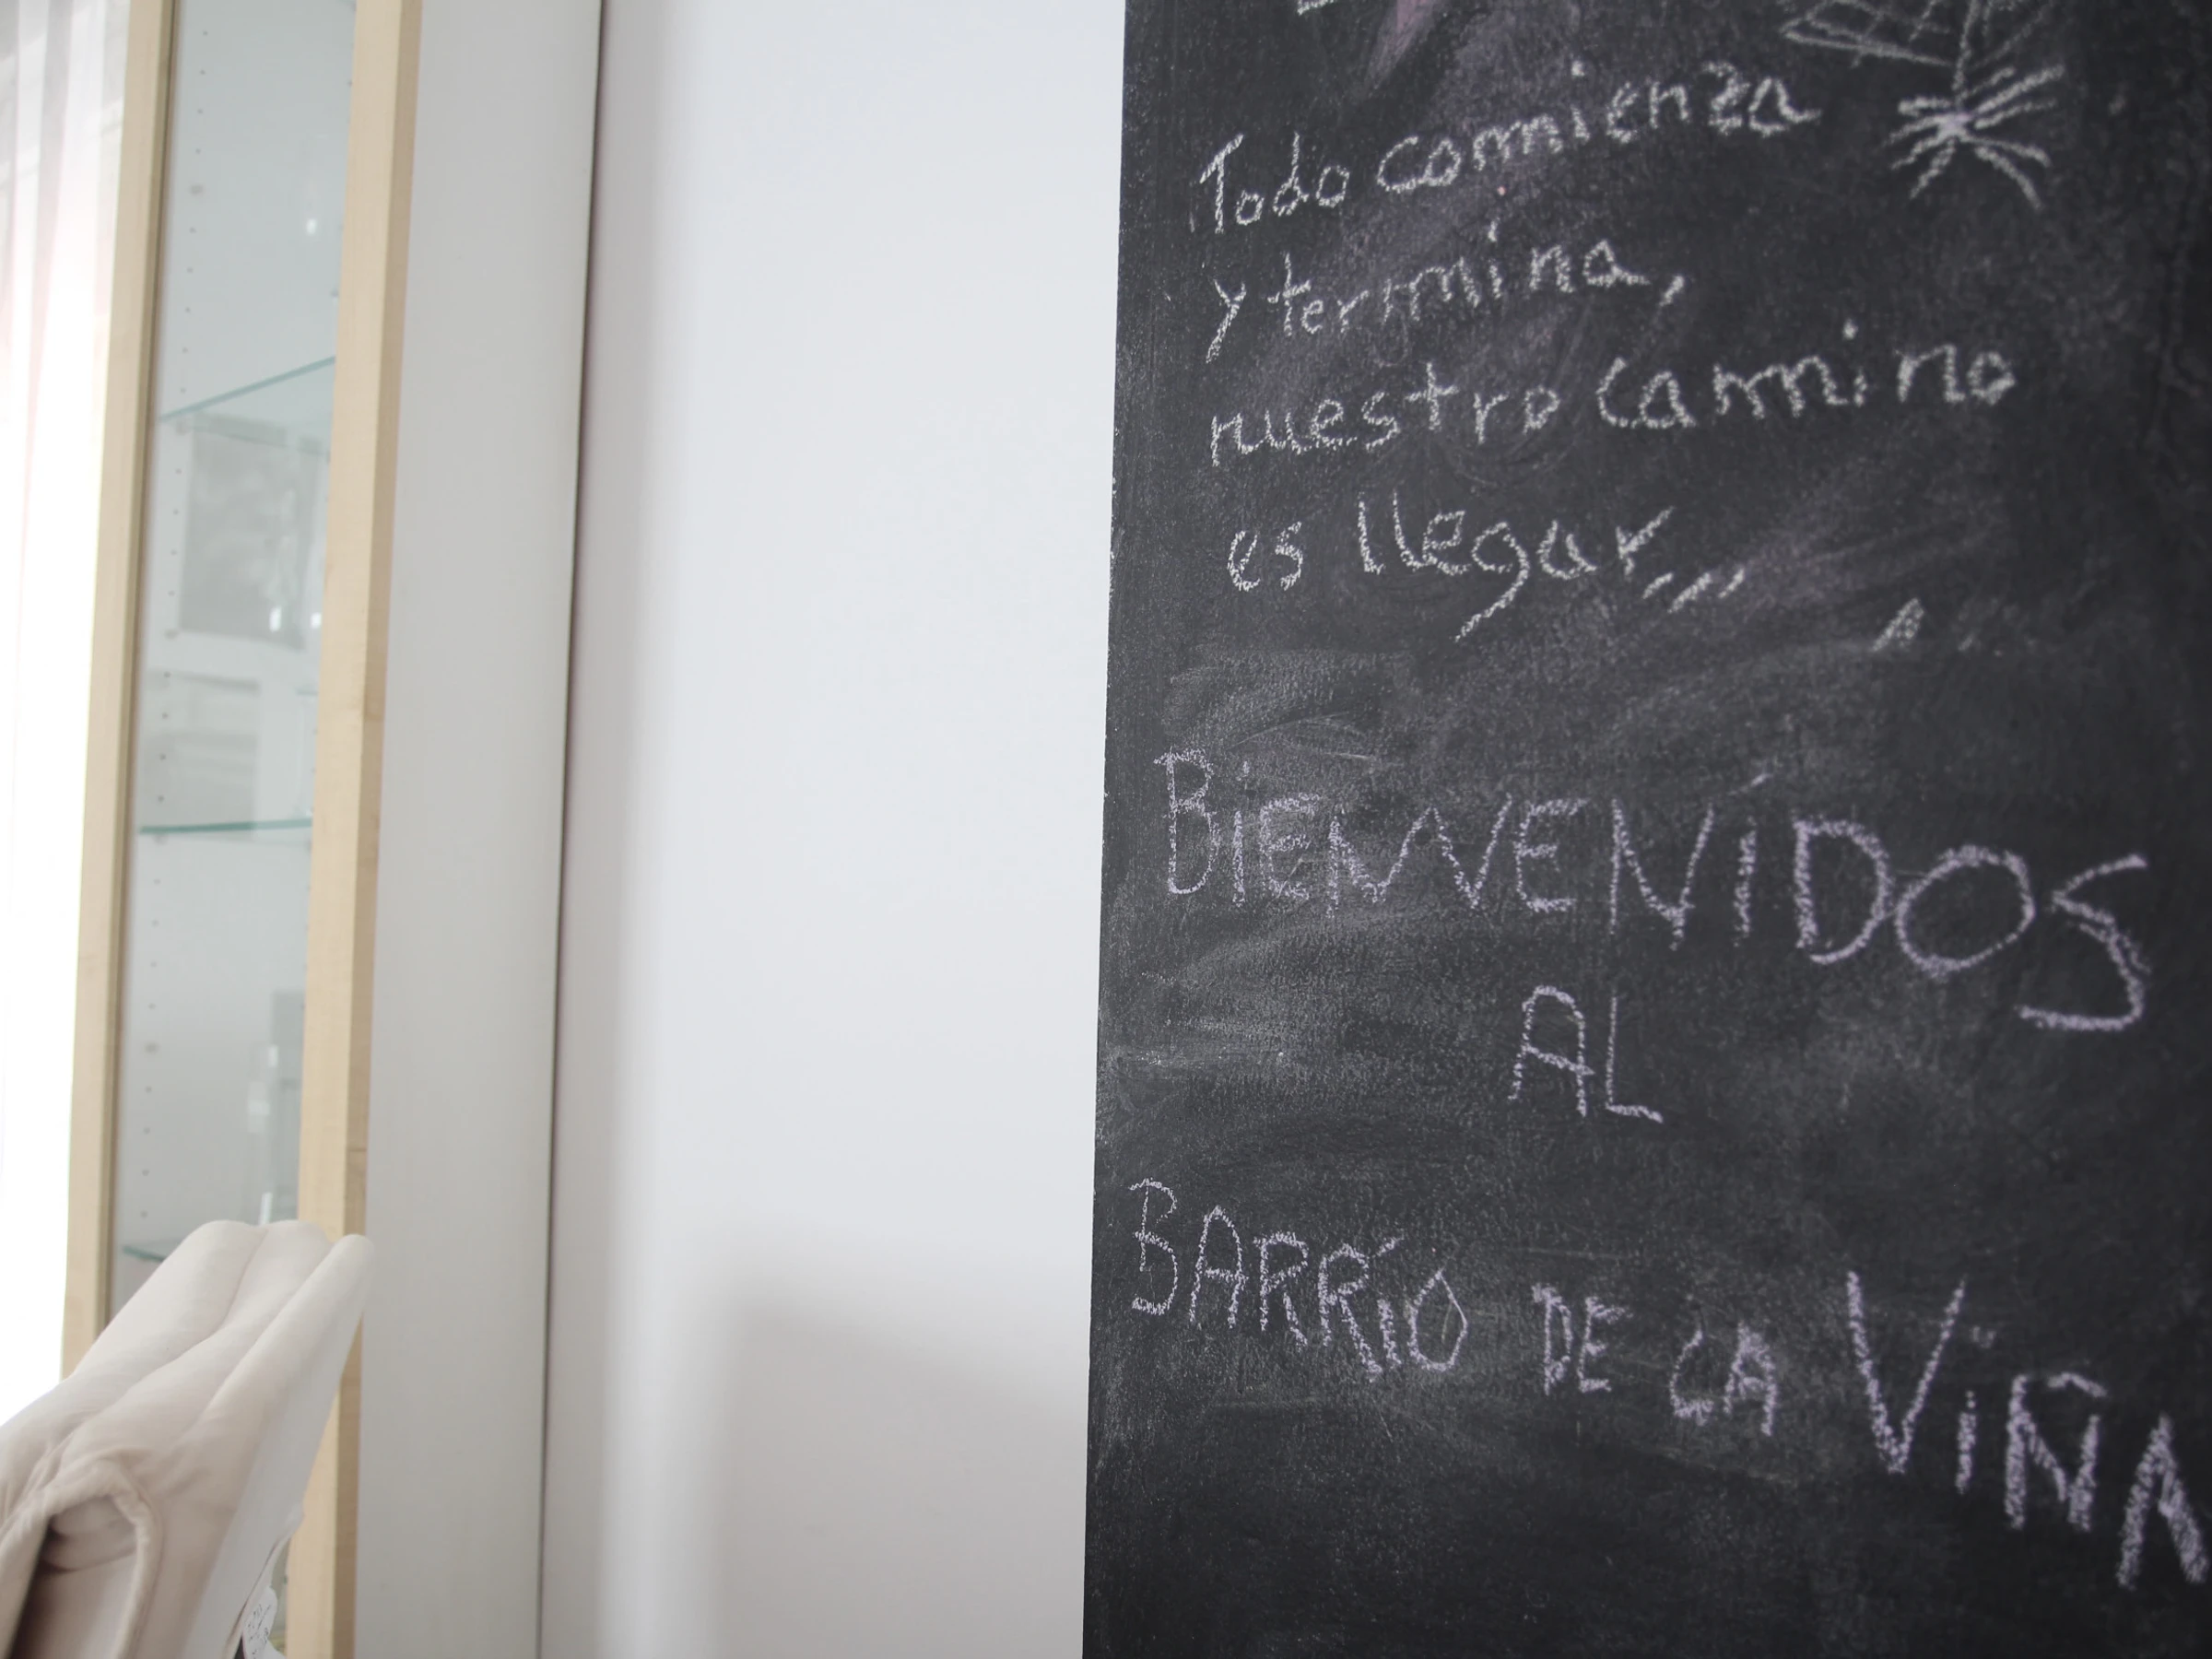 Todo comienza
y termina,
nuestro camino
es llegar,,,
BiENVENÍDOS
AL
BARRÍO DE LA ViÑA